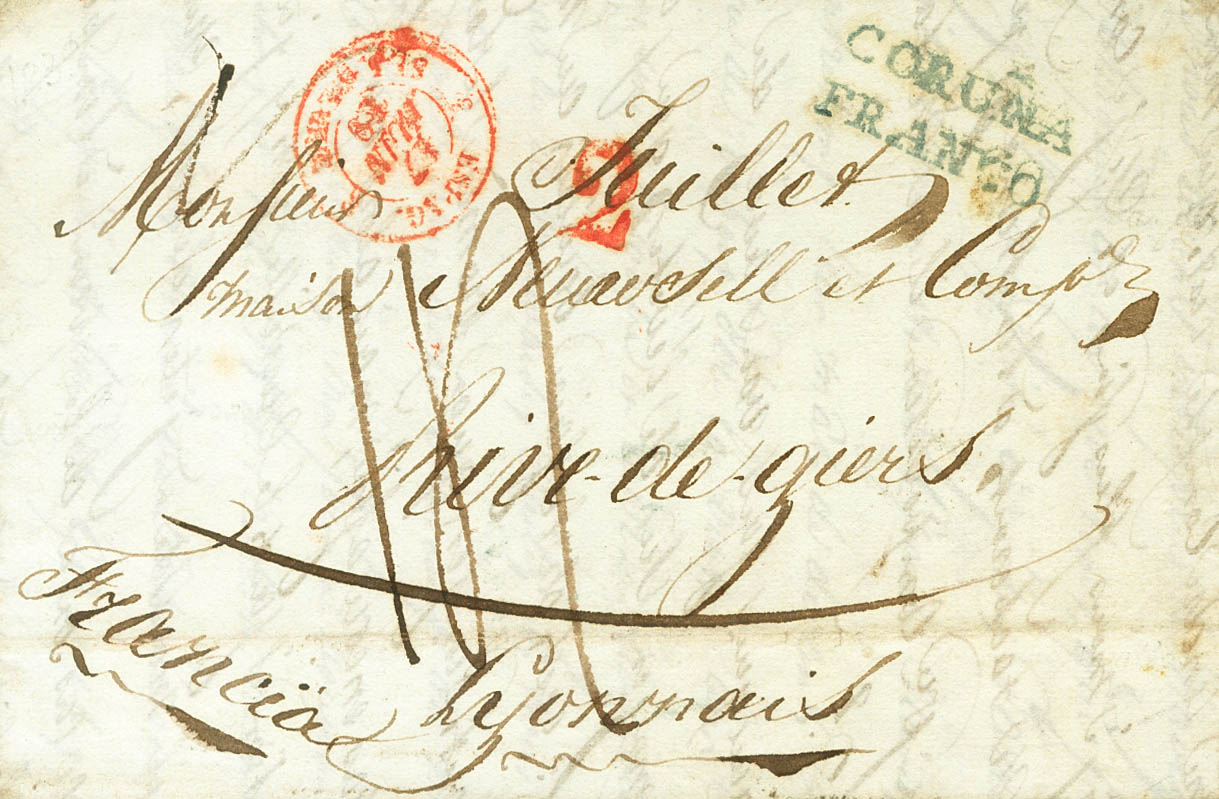 CORUÑA
FRANCO
Monsieur Juillet
maison et Comp
Rive-de-giers
Francia Lyonnais